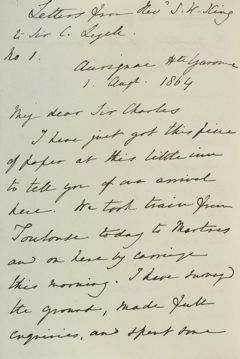 Letters from Revd S. W. King
to Sir C. Lyell.
No 1.
Aurignac Hte Garonne
1. Augt. 1864
My dear Sir Charles
I have just got this piece
of paper at this little inn
to tell you of our arrival
here. We took train from
Toulouse today to Martres
and on here by carriage
this morning. I have surveyed
the ground, made full
enquiries, and spent some